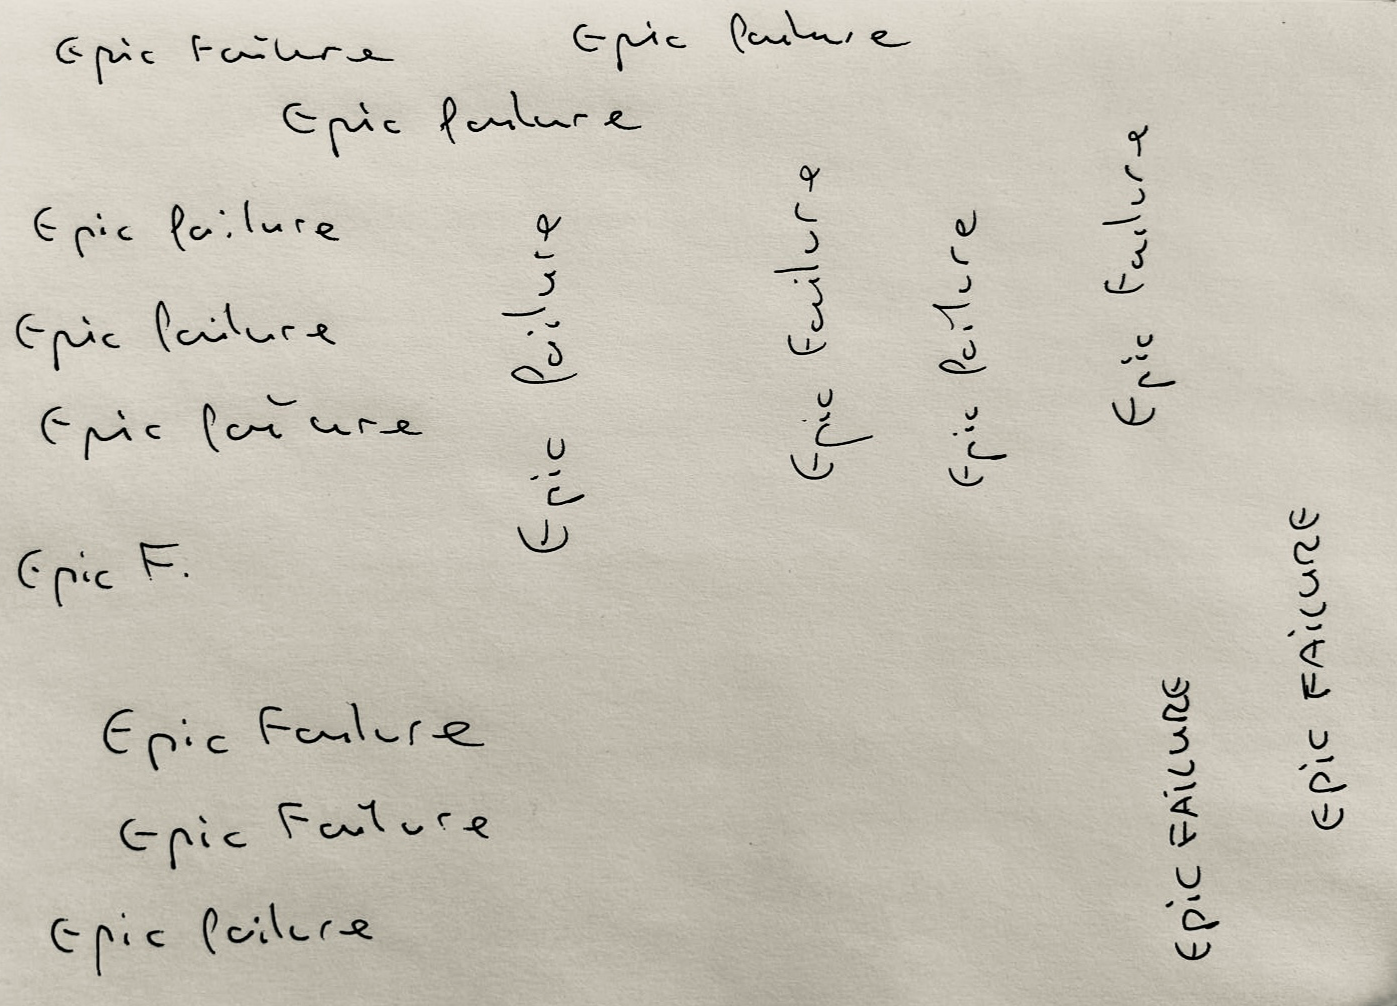 Epic Failure
Epic failure
Epic failure
Epic failure
Epic failure
Epic failure
Epic F.
Epic Failure
Epic Failure
Epic failure
Epic failure
Epic Failure
Epic failure
Epic Failure
EpiC FAiLURE
EpiC FAiLURE